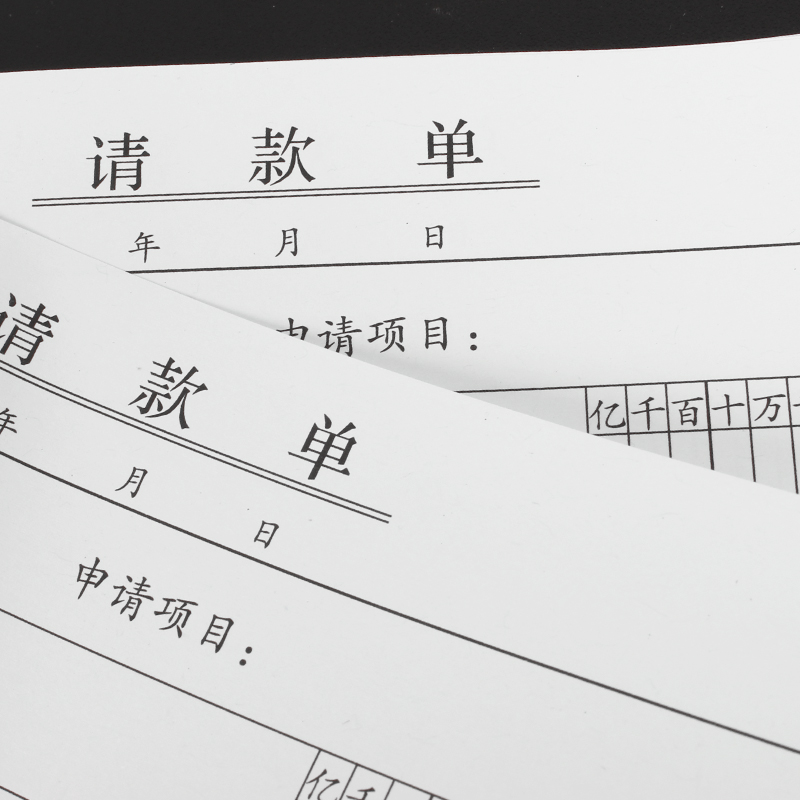 请 款 单
年 月 日
申请项目：
亿千百十万
请 款 单
年 月 日
申请项目：
亿千